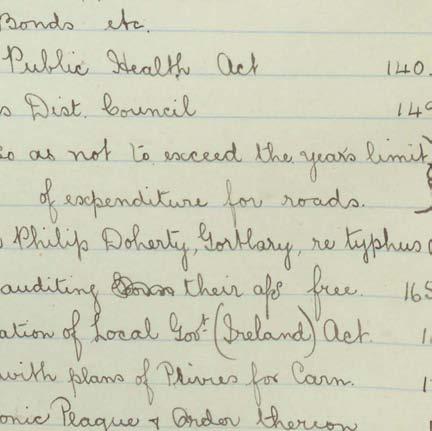 Bonds etc.
Public Health Act 140.
s Dist. Council 149
so as not to exceed the year's limit
of expenditure for roads.
Philip Doherty, Gortlary, re typhus
auditing their a/cs free. 165
ation of Local Govt. (Ireland) Act.
with plans of Privies for Carn. 1
onic Plague & Order thereon